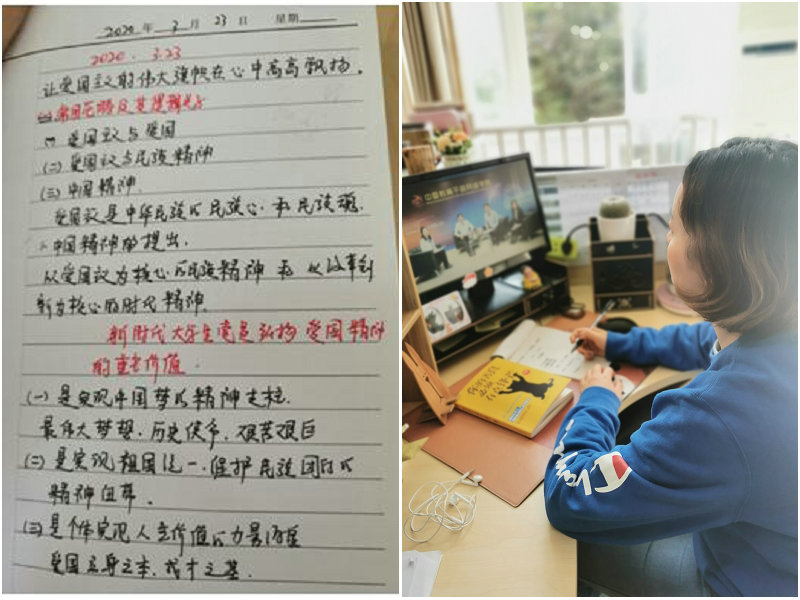 2020年 3月 23日 星期
2020. 3.23
让爱国主义的伟大旗帜在心中高高飘扬.
(一) 爱国
(二) 爱国主义与民族精神
(三) 中国精神.
爱国主义是中华民族的民族心、和民族魂.
中国精神的提出.
从爱国主义为核心的民族精神 和 以改革创
新为核心的时代精神.
新时代大学生党员弘扬 爱国精神
的重要价值.
(一) 是实现中国梦的精神支柱.
最伟大梦想. 历史使命. 艰苦艰巨
(二) 是实现祖国统一. 保护民族团结的
精神纽带.
(三) 是个体实现人生价值的力量源泉
爱国立身之本. 成才之基.
你的善良
必须
有点锋芒